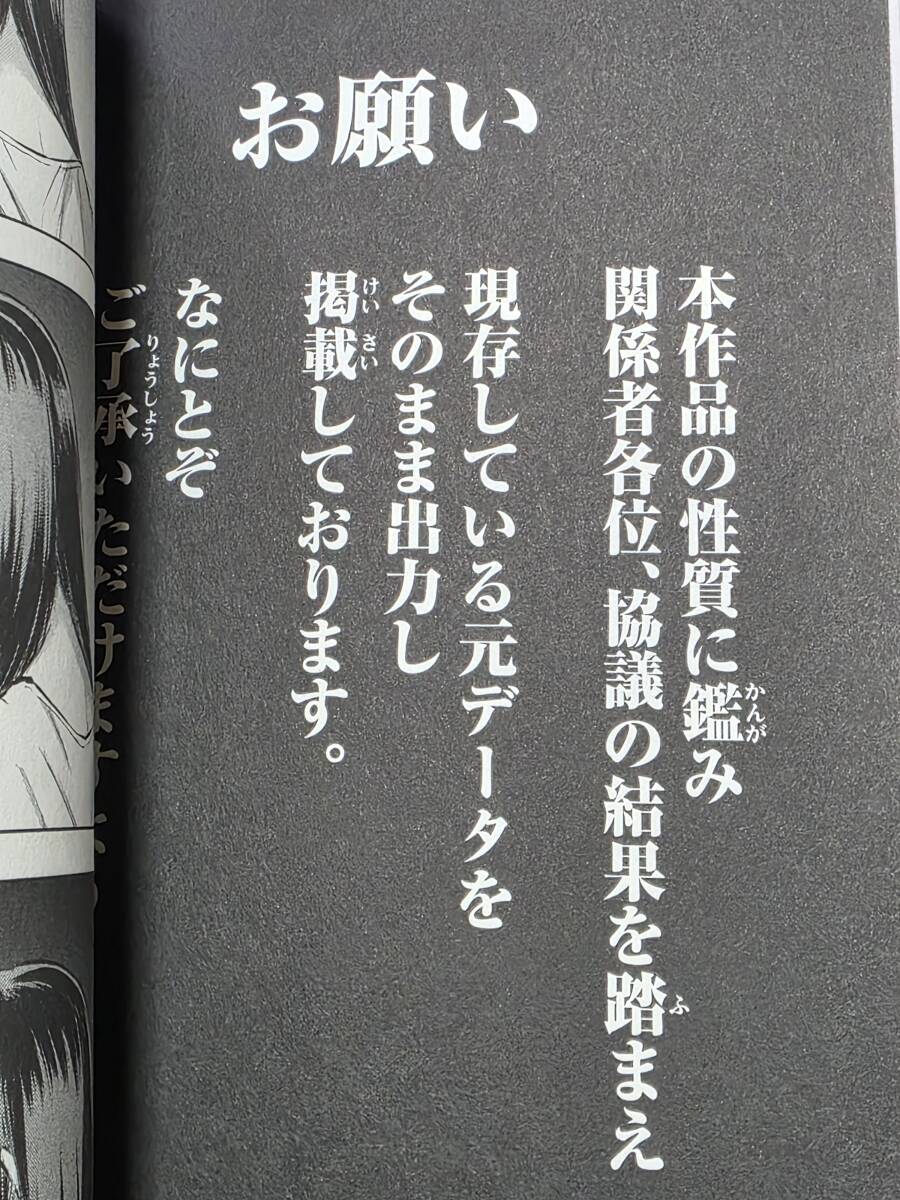 お願い
本作品の性質に鑑み
かんが
関係者各位、協議の結果を踏まえ
ふ
現存している元データを
そのまま出力し
掲載しております。
けいさい
なにとぞ
ご了承いただけます
りょうしょう